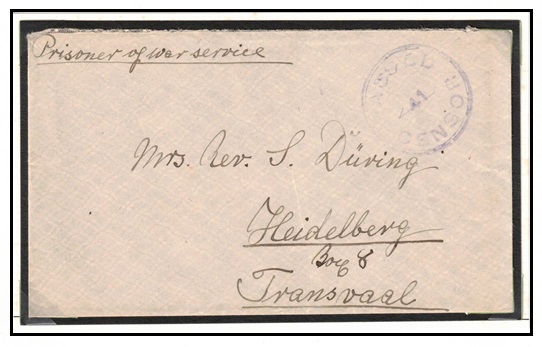 Prisoner of war service
PASSED
CENSOR
Mrs. Rev. S. Düring
Heidelberg
Box 8
Transvaal